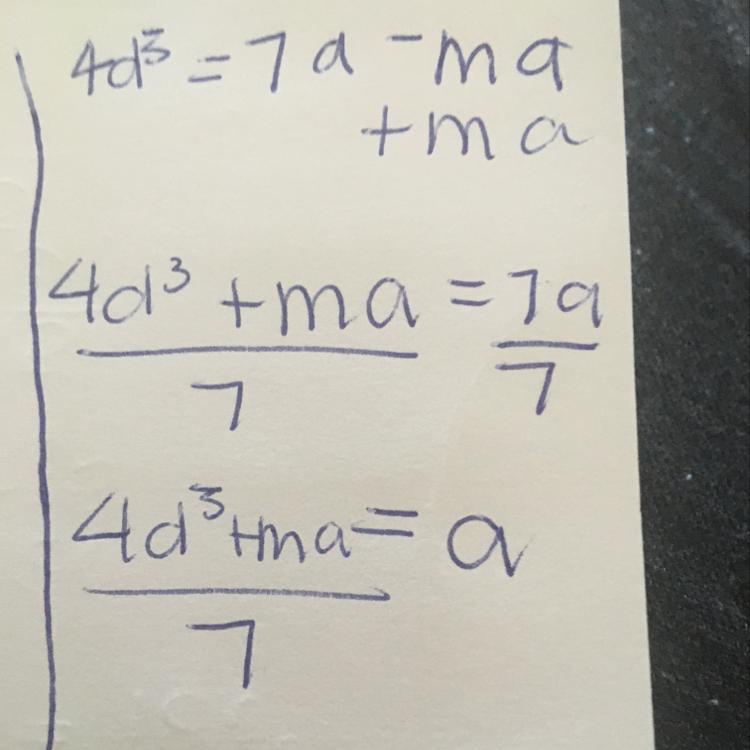 4d³ = 7a - ma
+ma
4d³ + ma = 7a
7 7
4d³ + ma = a
7